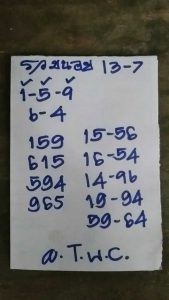 รวยนอย 13-7
1-5-9
6-4
159 15-56
615 16-54
594 14-96
965 19-94
59-64
อ.T.พ.C.